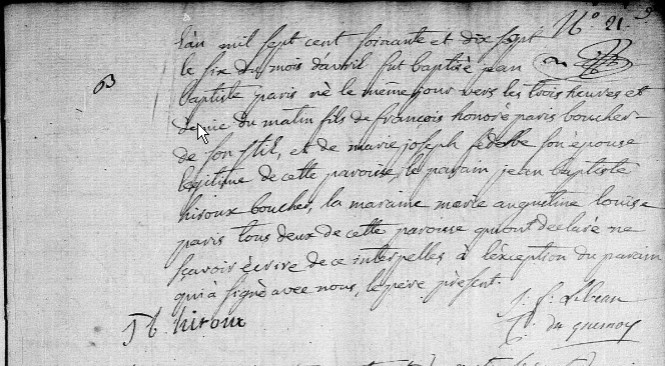 N° 21
B
L'an mil sept cent soixante et dix sept
le six du mois d'avril fut baptisé jean
baptiste paris né le même jour vers les trois heures et
demie du matin fils de françois honoré paris boucher
de son stil, et de marie joseph son épouse
légitime de cette paroisse, le parain jean baptiste
hiroux boucher, la maraine marie augustine louise
paris tous deux de cette paroisse qui ont declaré ne
sçavoir écrire de ce interpellés à l'éxception du parain
qui à signé avec nous, le père présent.
J b hiroux
du quesnoy